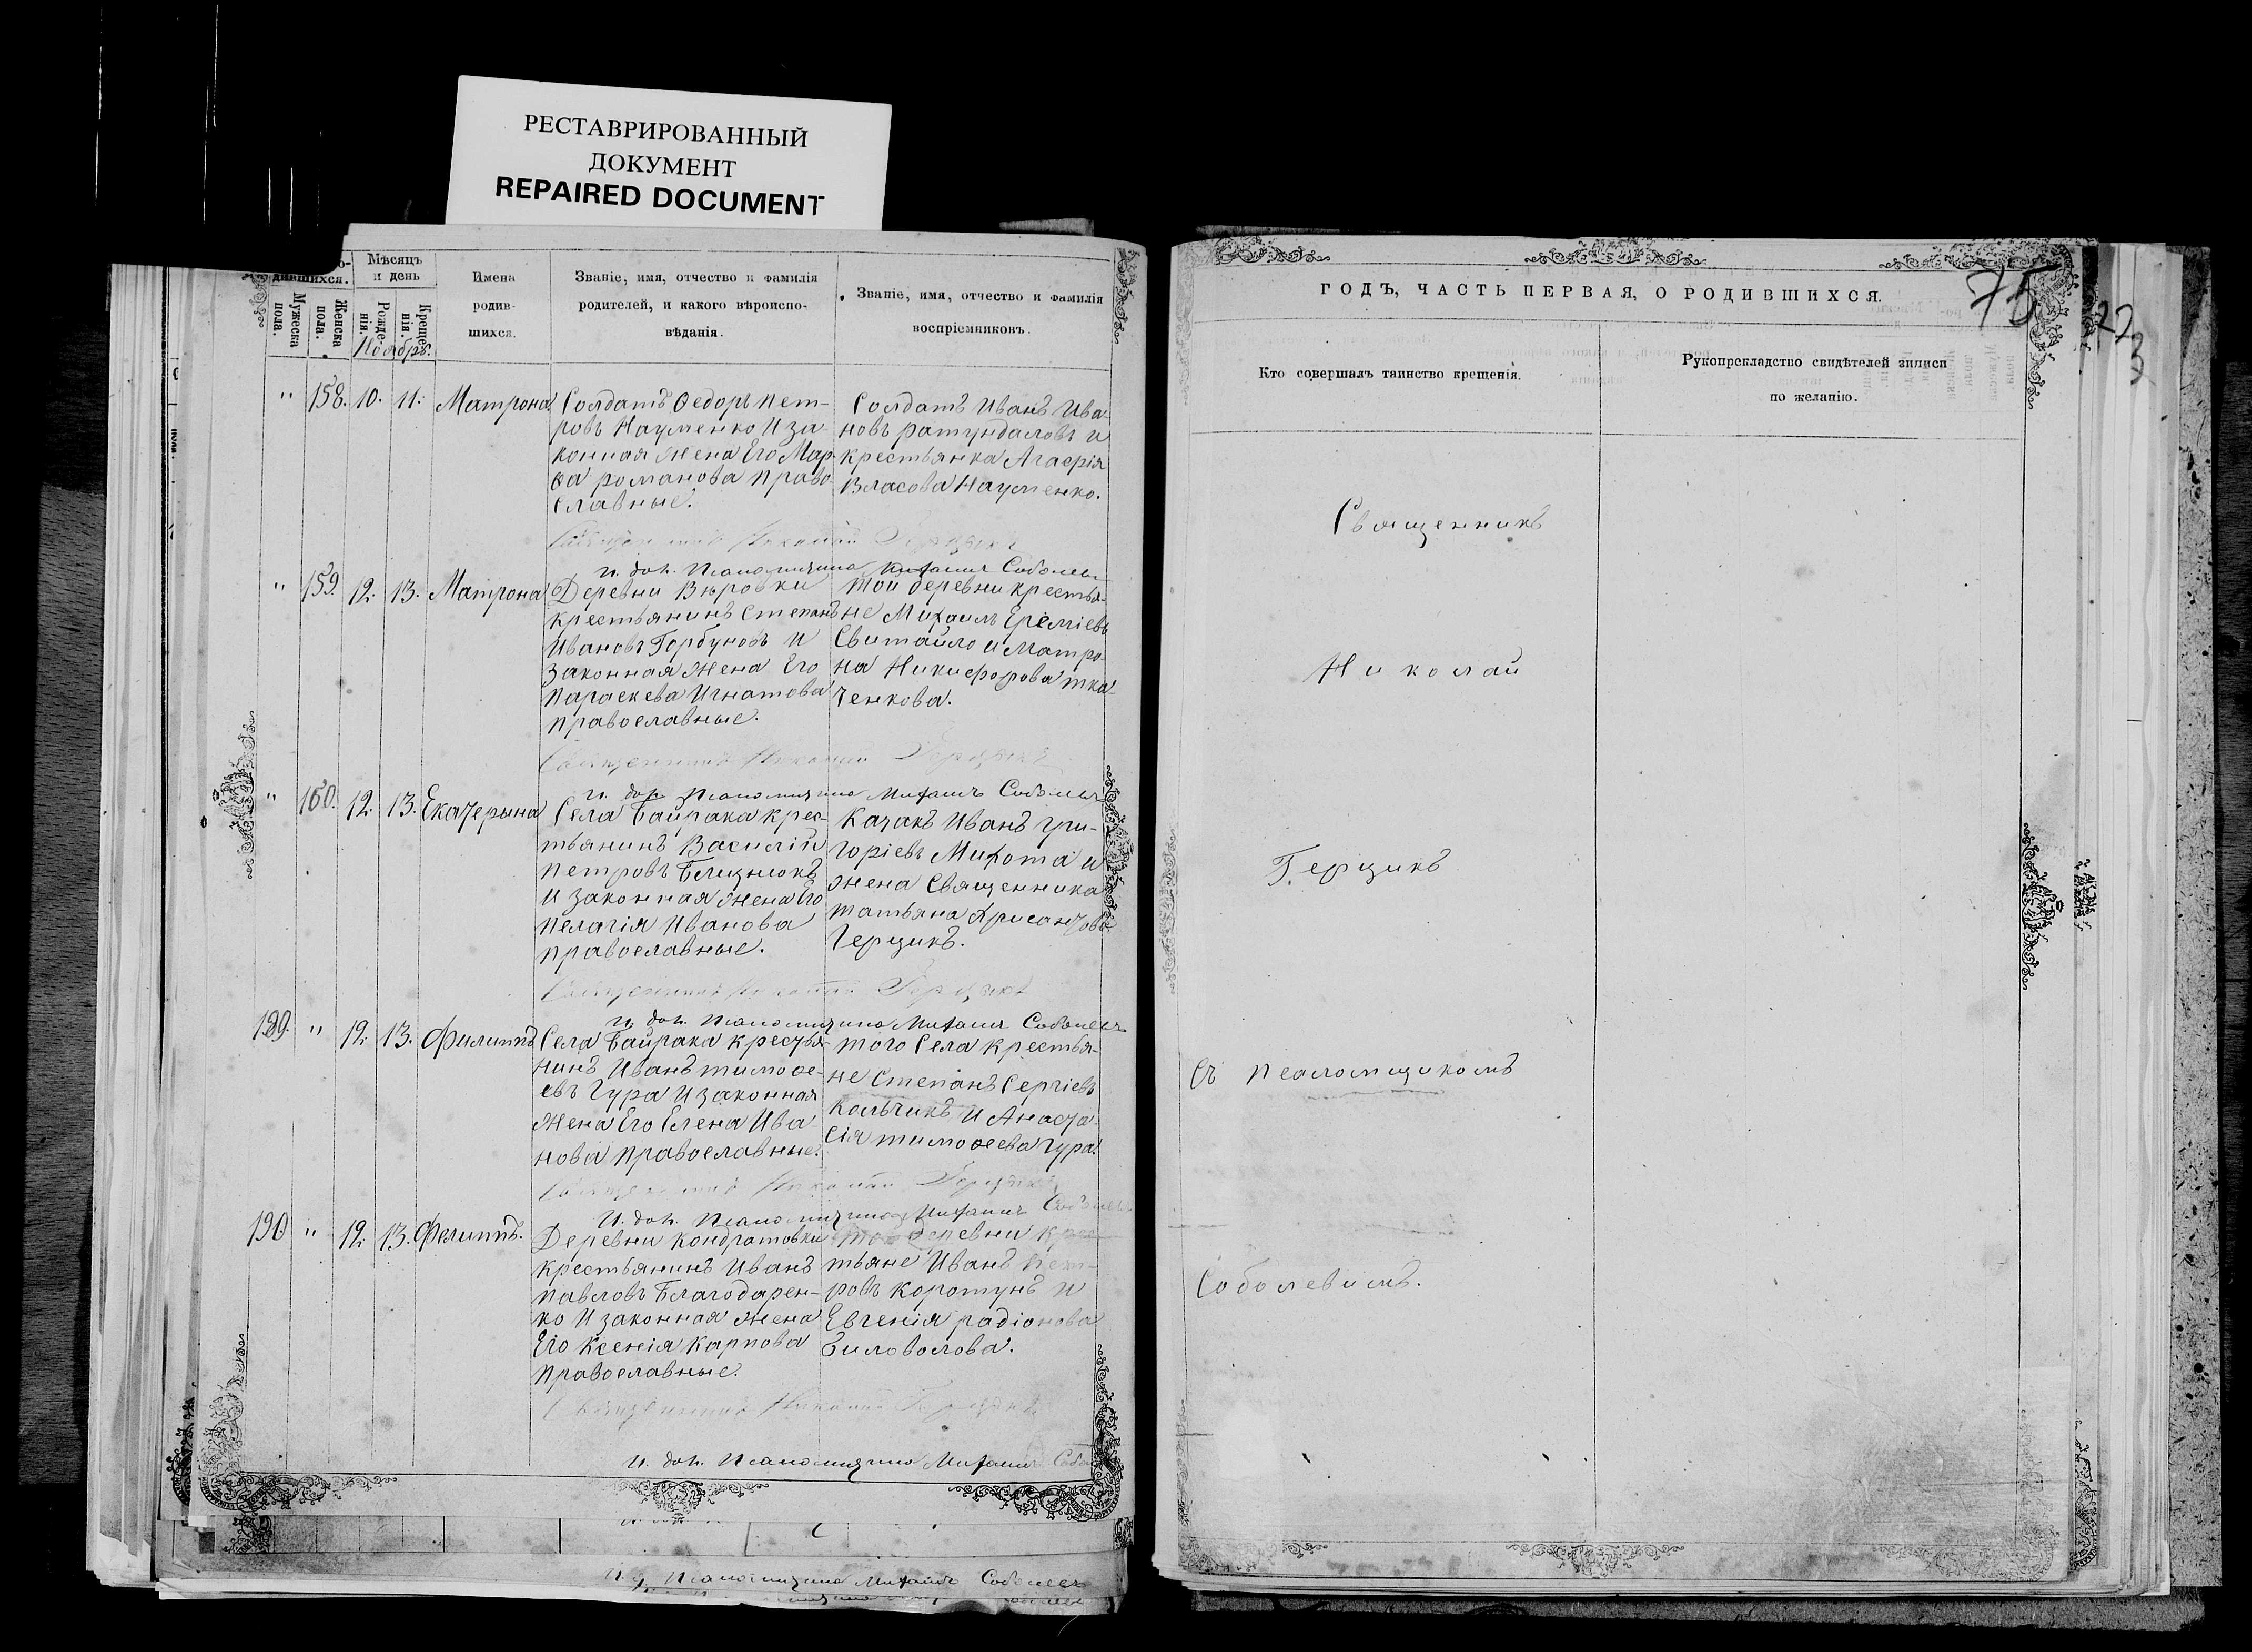 РЕСТАВРИРОВАННЫЙ
ДОКУМЕНТ
REPAIRED DOCUMENT
дившихся.
Мужеска пола.
Женска пола.
Мѣсяцъ и день
Рожде-нія.
Креще-нія.
Ноябрь.
Имена
родив-
шихся.
Званіе, имя, отчество и фамилія
родителей, и какого вѣроиспо-
вѣданія.
Званіе, имя, отчество и фамилія
воспріемниковъ.
" 158. 10. 11. Матрона
Солдатъ Ѳедоръ Пет-
ровъ Науменко и за-
конная жена Его Мар-
ѳа романова право-
славные.
Солдатъ Иванъ Ива
новъ ратундаловъ и
крестьянка Агафія
Власова Науменко.
Священникъ Николай Герцикъ
И. дол. Псаломщика Михаилъ Соболевъ
" 159. 12. 13. Матрона
Деревни Вѣровки
крестьянинъ Степанъ
Ивановъ Горбуновъ и
законная жена Его
Параскева Игнатова
православные.
той деревни крестья-
не Михаилъ Ереміевъ
Свитайло и Матро-
на Никифорова тка-
ченкова.
Священникъ Николай Герцикъ
И. дол. Псаломщика Михаилъ Соболевъ
" 160. 12. 13. Екатерына
Села Байрака крес-
тьянинъ Василій
Петровъ Близнюкъ
и законная жена Его
Пелагія Иванова
православные.
Казакъ Иванъ гри-
горіевъ Михота и
жена Священника
татьяна Хрисанѳова
Герцикъ.
Священникъ Николай Герцикъ
И. дол. Псаломщика Михаилъ Соболевъ
189. " 12. 13. Филиппъ
Села Байрака крестья-
нинъ Иванъ тимоѳе-
евъ Гура и законная
жена Его Елена Ива-
нова православные.
того Села крестья-
не Степанъ Сергіевъ
Кольчикъ и Анаста-
сія тимоѳеева Гура.
Священникъ Николай Герцикъ
И. дол. Псаломщика Михаилъ Соболевъ
190 " 12. 13. Филиппъ.
Деревни Кондратовки
крестьянинъ Иванъ
Павловъ Благодарен-
ко и законная жена
Его Ксенія Карпова
православные.
той деревни крес-
тьяне Иванъ Пет-
ровъ Коротунъ и
Евгенія радіонова
Биловолова.
Священникъ Николай Герцикъ
И. дол. Псаломщика Михаилъ
И. д. Псаломщика Михаилъ Соболевъ
ГОДЪ, ЧАСТЬ ПЕРВАЯ, О РОДИВШИХСЯ.
75
Кто совершалъ таинство крещенія.
Рукоприкладство свидѣтелей записи
по желанію.
Священникъ
Николай
Герцикъ
съ псаломщикомъ
Соболевымъ.